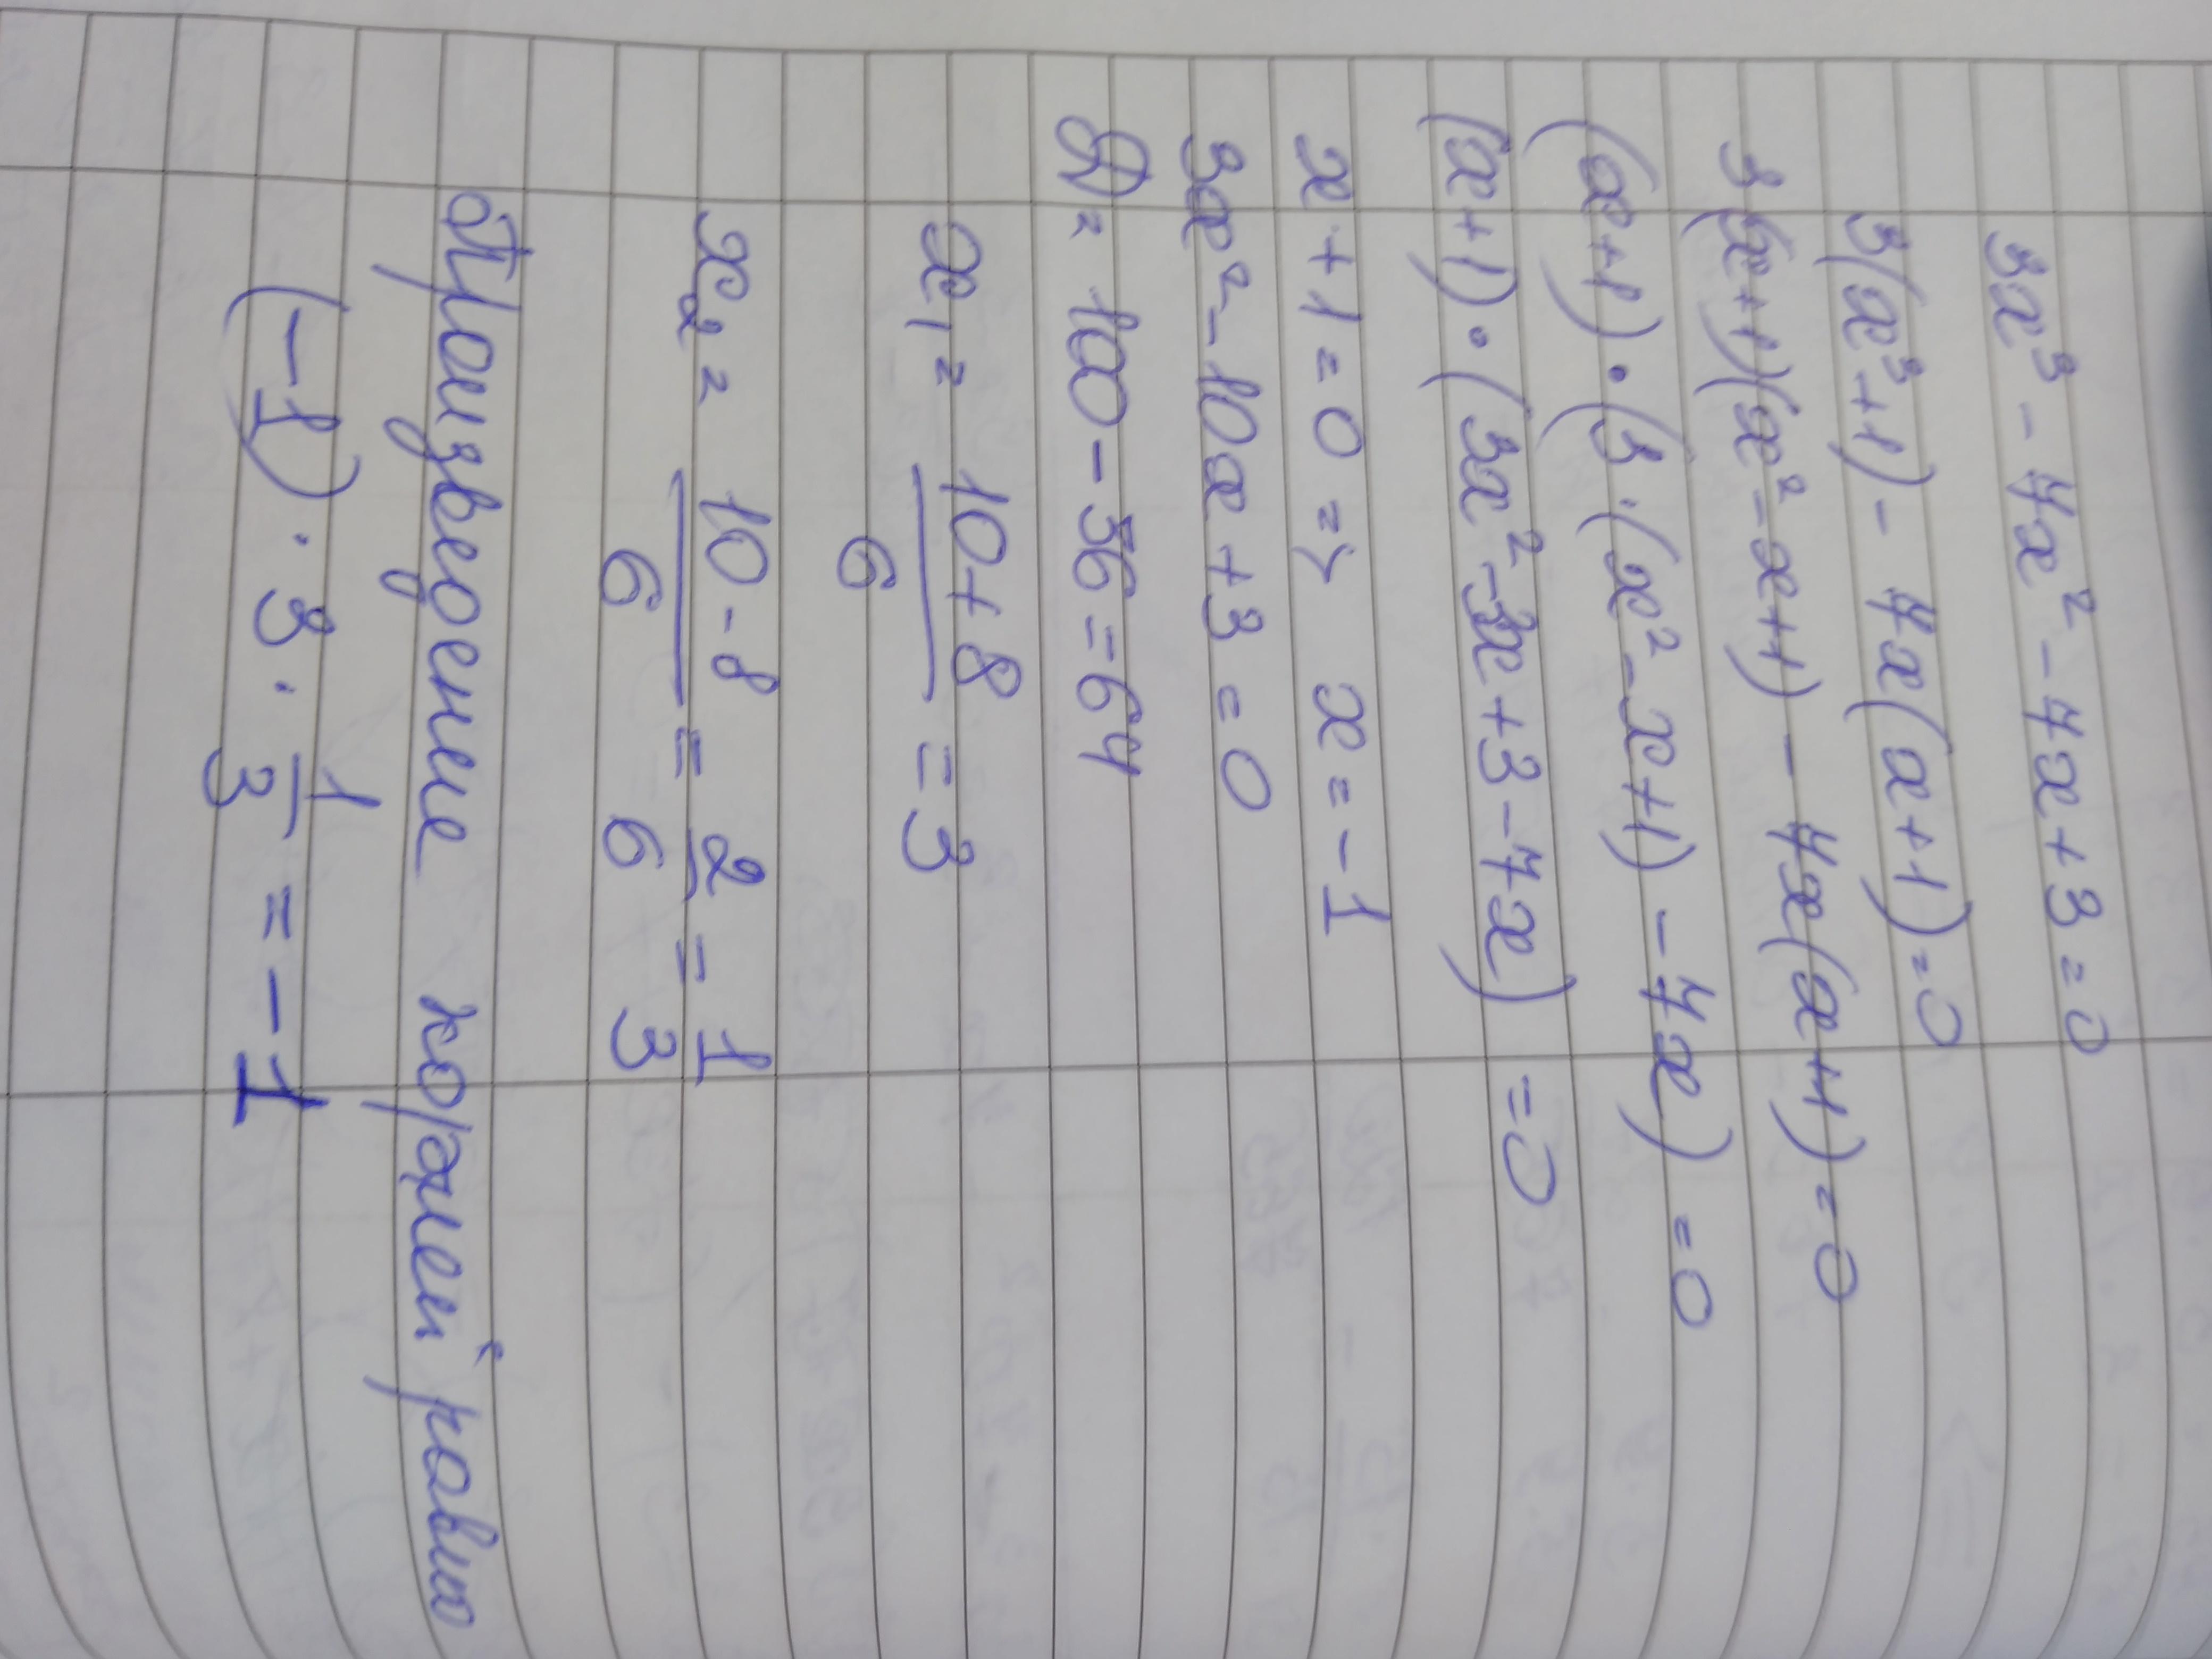 3x³ - 7x² - 7x + 3 = 0
3(x³+1) - 7x(x+1) = 0
3(x+1)(x²-x+1) - 7x(x+1) = 0
(x+1)·(3·(x²-x+1) - 7x) = 0
(x+1)·(3x²-3x+3-7x) = 0
x+1=0 => x=-1
3x²-10x+3=0
D = 100-36=64
x₁ = (10+8)/6 = 3
x₂ = (10-8)/6 = 2/6 = 1/3
Произведение корней равно
(-1)·3·1/3 = -1